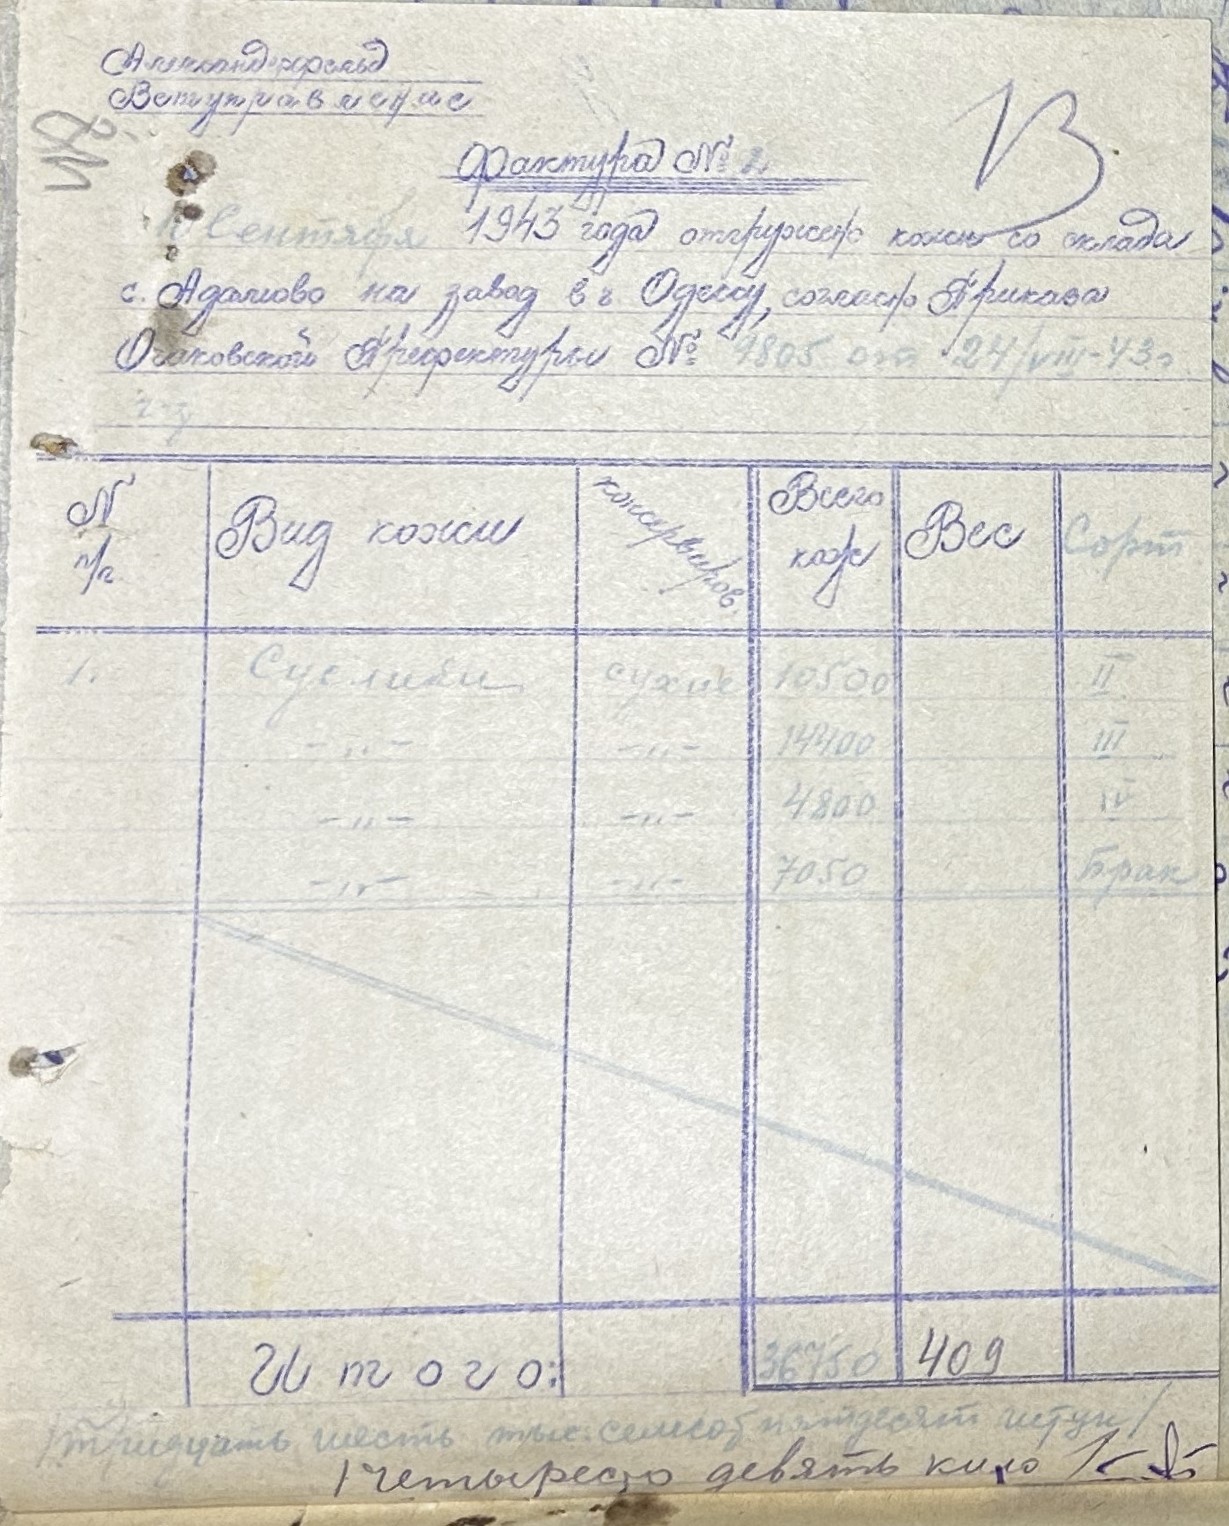 Александерфельд
Ветуправление
Фактура № 2
Сентября 1943 года отгружено кожи со склада
с. Адамово на завод в г. Одессу, согласно Приказа
Очаковской Префектуры № 1805 от 24/VIII-43 г.
N п/г
Вид кожи
консервиров.
Всего кож
Вес
Сорт
1. Суслики сухие 10500 II
-„- -„- 14400 III
-„- -„- 4800 IV
-„- -„- 7050 Брак
Итого: 36750 409
/Тридцать шесть тыс. семсот пятдесят штук/
/четыресто девять кило